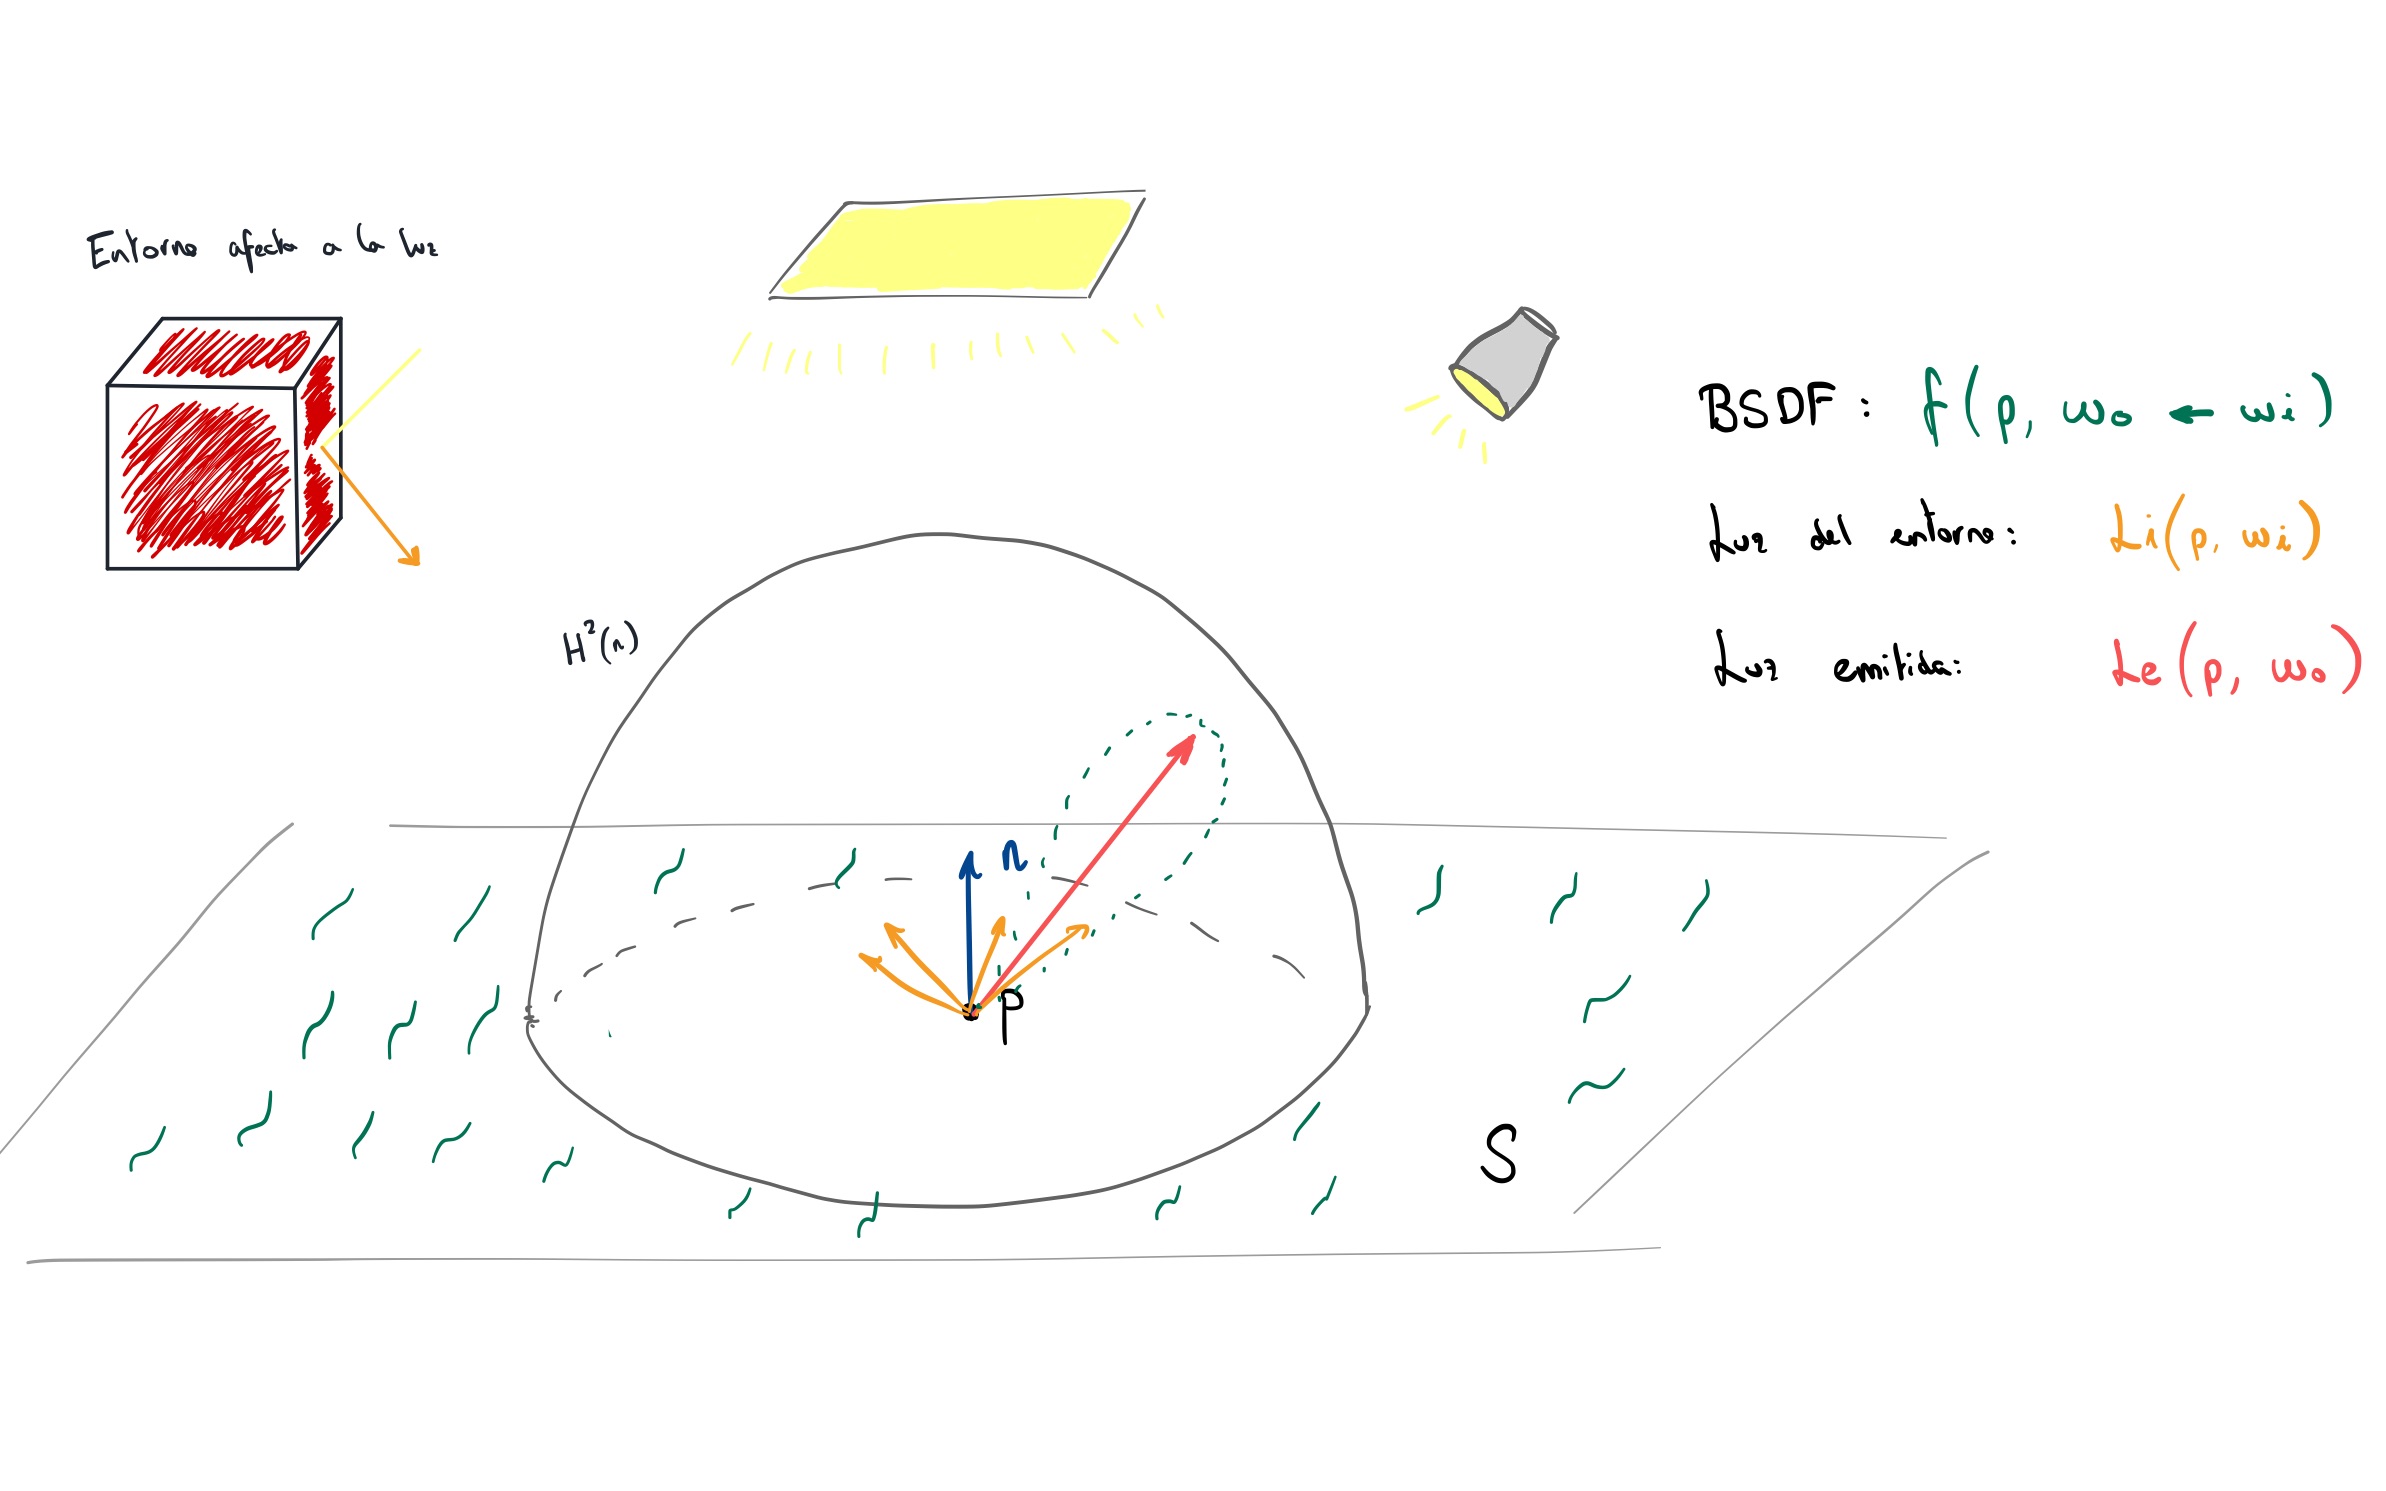 Entorno afecta a la luz
BSDF: f(p, ωo ← ωi)
Luz del entorno: Li(p, ωi)
Luz emitida: Le(p, ωo)
H²(n)
n
p
S